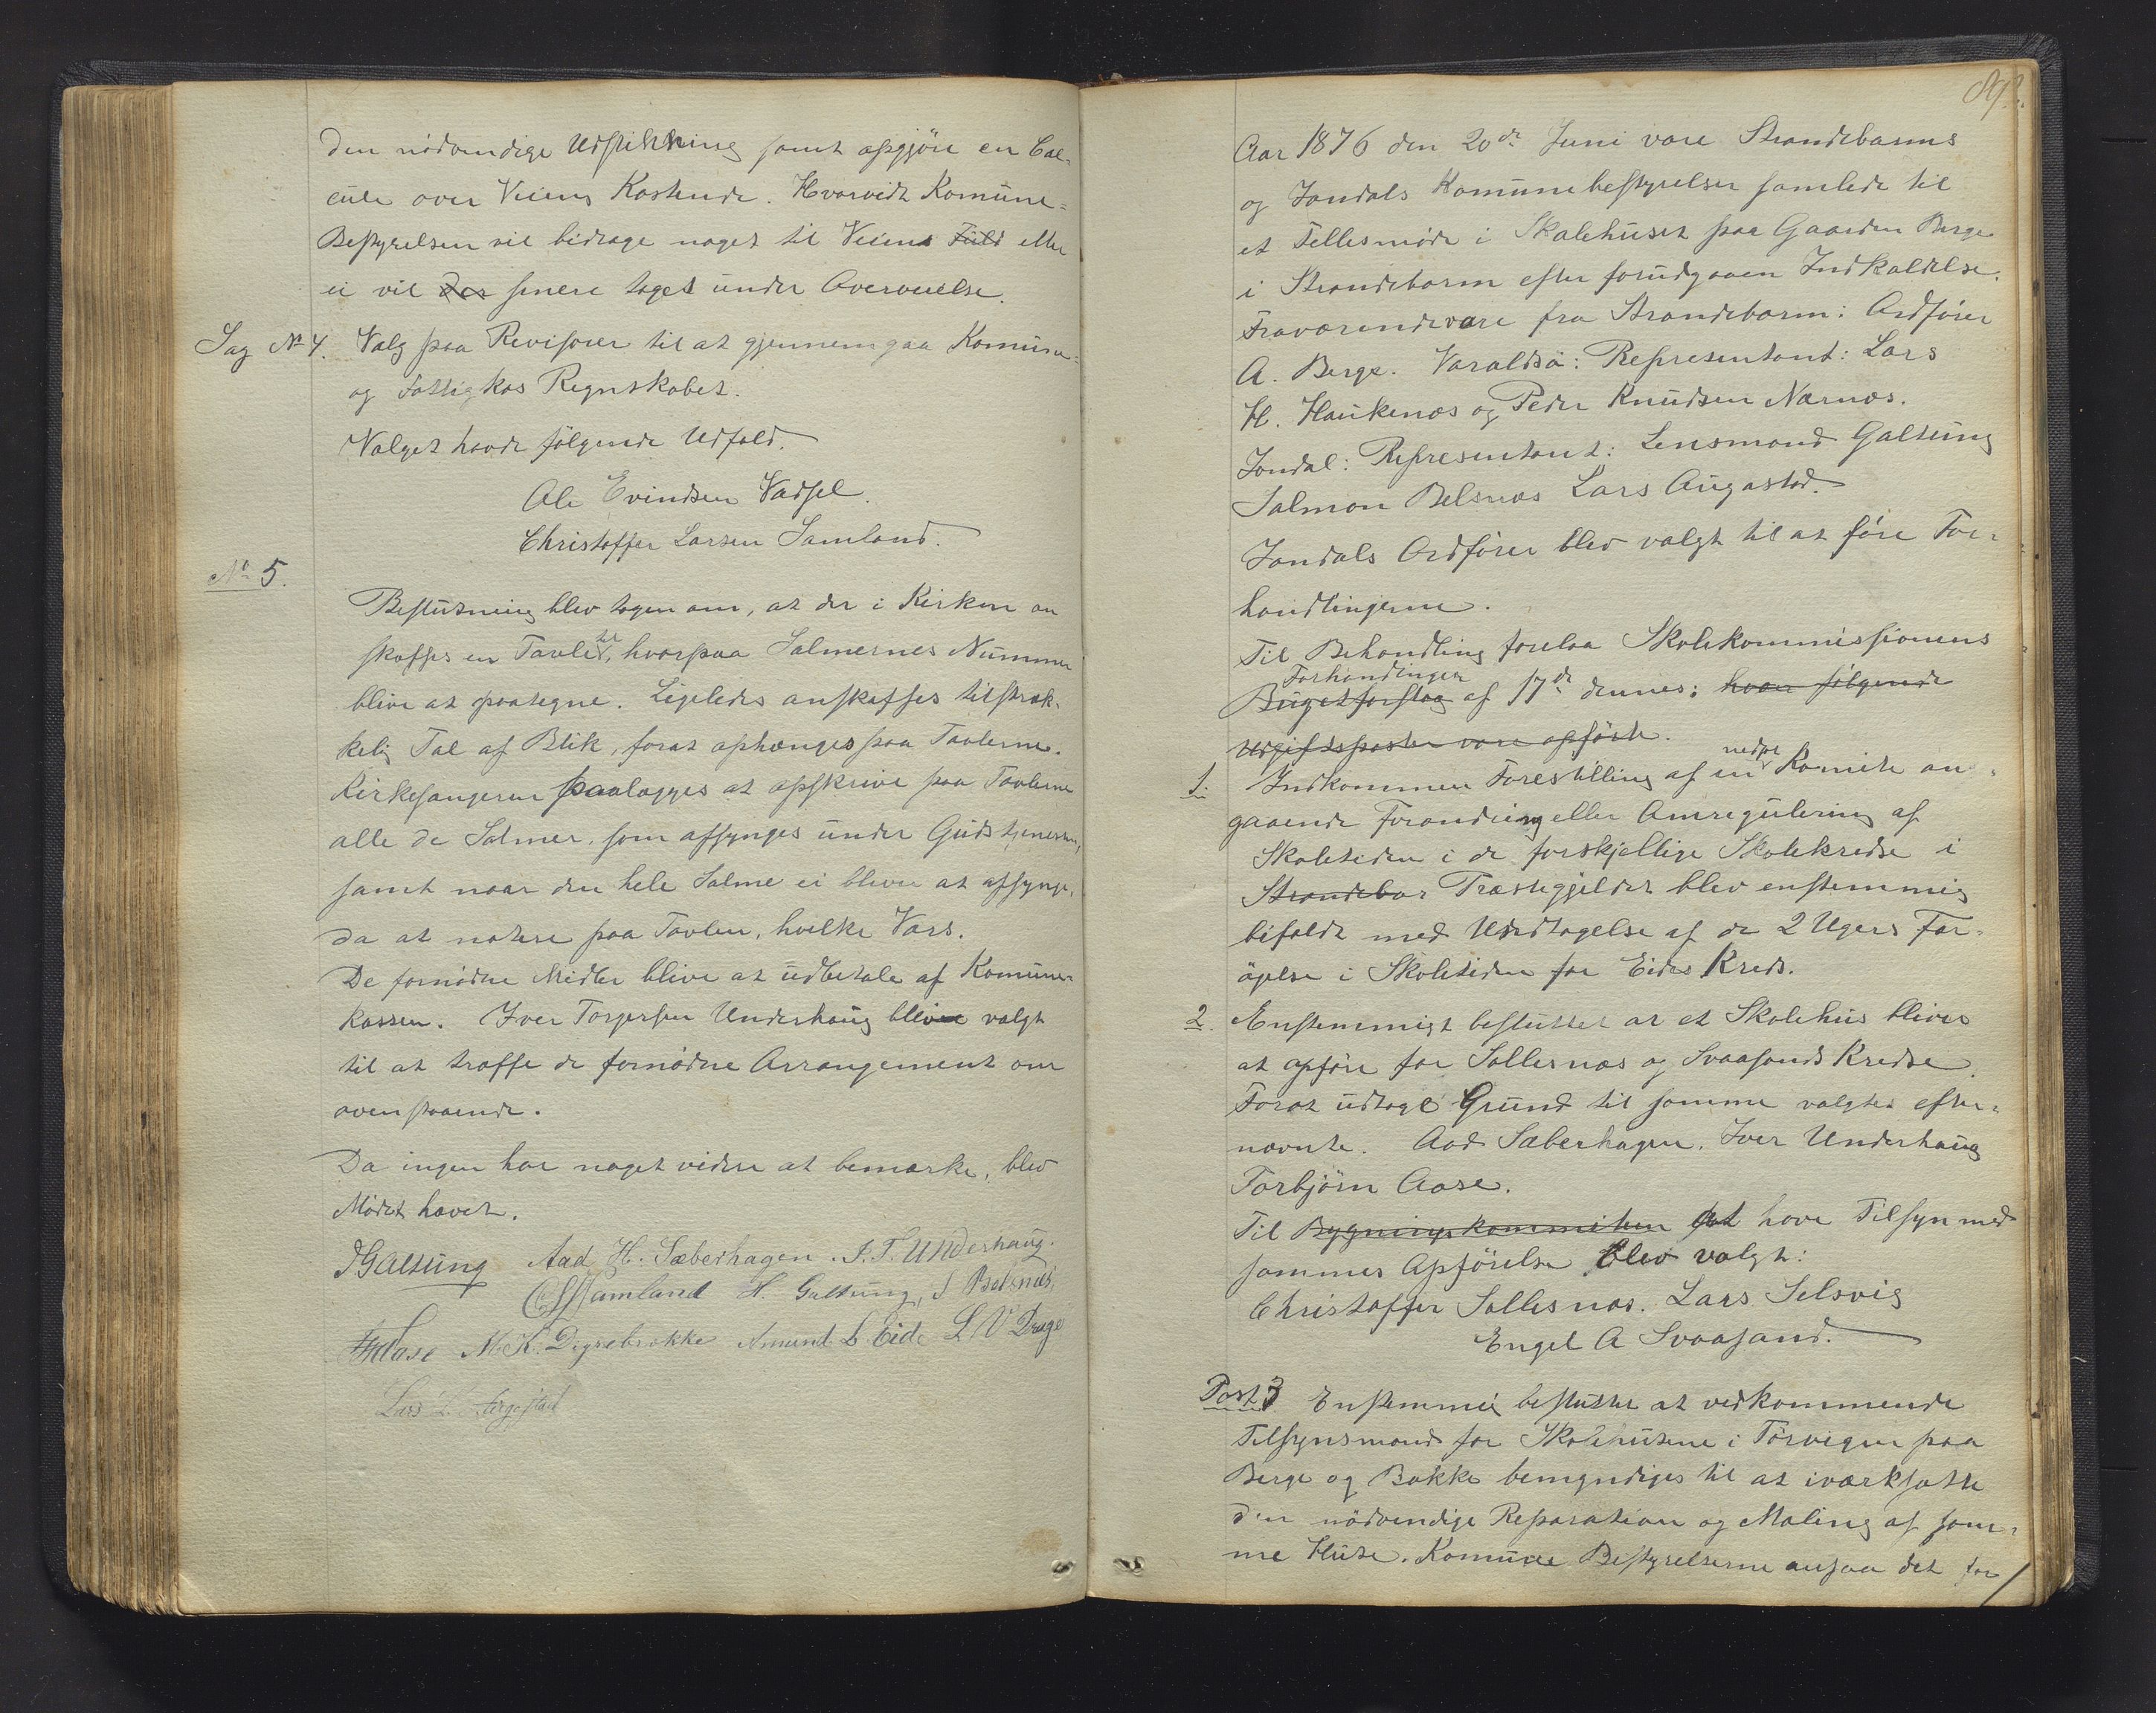 den nödvendige Udstikning samt opgjöre en Cal-
cule over Veiens Kostende. Hvorvidt Komune-
Bestyrelsen vil bidrage noget til Veiens Fuld eller
ei vil der senere taget under Overveielse.
Sag No 4. Valg paa Revisorer til at gjennemgaa Komune-
og Fattigkas Regnskabet.
Valget havde fölgende Udfald.
Ole Evindsen Vadsel.
Christoffer Larsen Samland.
No 5.
Beslutning blev tagen om, at der i Kirken an
skaffes en Tavle til, hvorpaa Salmernes Nummer
blive at paategne. Ligeledes anskaffes tilstræk-
kelig Tal af Blik, forat ophænges paa Tavlerne.
Kirkesangeren paalægges at opskrive paa Tavlerne
alle de Salmer, som afsynges under Gudstjenesten,
samt naar den hele Salme ei bliver at afsynge,
da at notere paa Tavlen, hvilke Værs.
De fornödne Midler blive at udbetale af Komune-
kassen. Iver Torgersen Underhaug bliver valgt
til at træffe de fornödne Arrangement om
ovenstaaende.
Da ingen har noget videre at bemærke, blev
Mödet hævet.
JGaltung Aad H. Sæberhagen. I. T. Underhaug.
C L Samland H. Galtung, S Belsnæs,
Aase M. K. Digrebrække Amund L Eide L V Drage
Lars L. Augestad
Aar 1876 den 20de Juni vare Strandebarms
og Jondals Komunebestyrelser samlede til
et Fellesmöde i Skolehuset paa Gaarden Berge
i Strandebarm efter forudgaaen Indkaldelse.
Fraværende vare fra Strandebarm: Ordförer
A. Berge. Varaldsö: Representant: Lars
H. Haukenæs og Peder Knudsen Nærnæs.
Jondal: Representant: Lensmand Galtung
Salmon Belsnæs Lars Augastad.
Jondals Ordförer blev valgt til at före For-
handlingerne.
Til Behandling forelaa Skolekommissionens
Forhandlinger
Bugetforslag af 17de dennes; hvor fölgende
Udgiftsposter vare opförte.
1. Indkommen Forestilling af en nedsat Komite an-
gaaende Forandring eller Omregulering af
Skoletiden i de forskjellige Skolekredse i
Strandebar Præstegjeldet blev enstemmig
bifaldt med Undtagelse af de 2 Ugers For-
ögelse i Skoletiden for Eides Kreds.
2. Enstemmigt besluttet at et Skolehus bliver
at opföre for Sollesnæs og Svaasands Kredse.
Forat udtage Grund til samme valgtes efter-
nævnte. Aad Sæberhagen. Iver Underhaug
Torbjörn Aase.
Til Bygningskommiteen at have Tilsyn med
sammes Opförelse blev valgt:
Christoffer Sollesnæs. Lars Selsvig
Engel A Svaasand.
Post 3 Enstemmig besluttet at vedkommende
Tilsynsmænd for Skolehusene i Törvigen paa
Berge og Bakke bemyndiges til at iværksætte
den nödvendige Reparation og Maling af sam-
me Huse. Komune Bestyrelserne ansaa det for